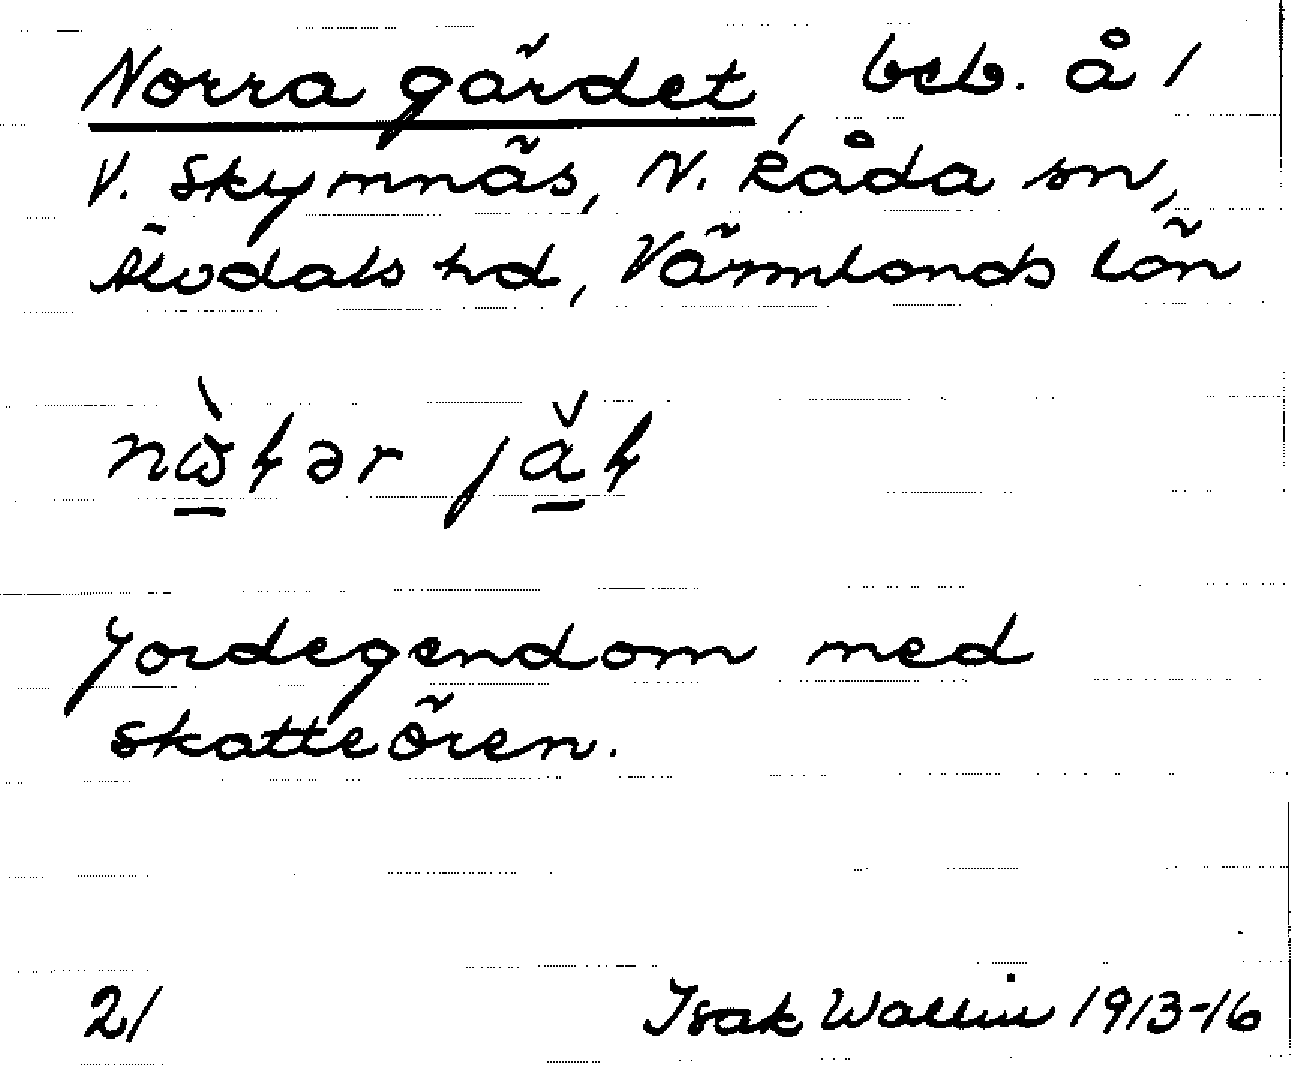 Norra gärdet, beb. å 1
V. Skymnäs, N. Råda sn,
Älvdals hd, Värmlands län
Jordegendom med
skatteören.
21 Isak Wallin 1913-16